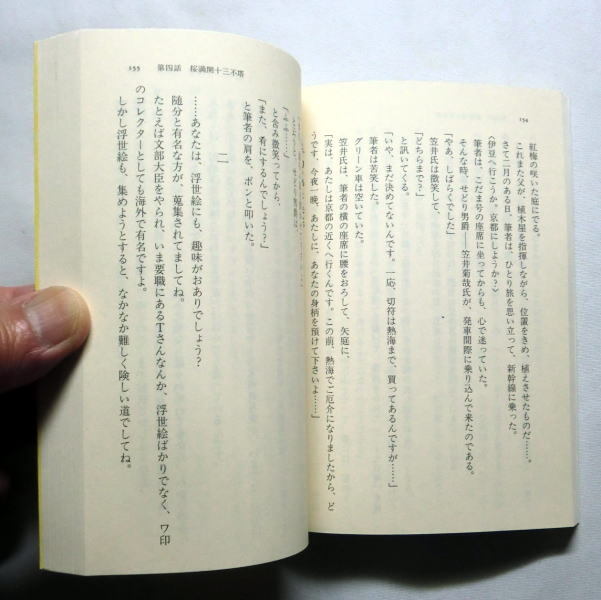 154
紅梅の咲いた庭にでる。
これまた父が、植木屋を指揮しながら、位置をきめ、植えさせたものだ……。
さて二月のある日、筆者は、ひとり旅を思い立って、新幹線に乗った。
〈伊豆へ行こうか。京都にしようか?〉
筆者は、こだま号の座席に坐ってからも、心で迷っていた。
そんな時、せどり男爵——笠井菊哉氏が、発車間際に乗り込んで来たのである。
「やあ、しばらくでした」
笠井氏は微笑して、
「どちらまで?」
と訊いてくる。
「いや、まだ決めてないんです。一応、切符は熱海まで、買ってあるんですが……」
筆者は苦笑した。
グリーン車は空いていた。
笠井氏は、筆者の横の座席に腰をおろして、矢庭に、
「実は、あたしは京都の近くへ行くんです。この前、熱海でご厄介になりましたから、ど
うです、今夜一晩、あたしに、あなたの身柄を預けて下さいよ……」
155
第四話 桜満開十三不塔
「ふふ……」
と含み微笑ってから、
「また、肴にするんでしょう?」
と筆者の肩を、ポンと叩いた。
二
……あなたは、浮世絵にも、趣味がおありでしょう?
随分と有名な方が、蒐集されてましてね。
たとえば文部大臣をやられ、いま要職にあるTさんなんか、浮世絵ばかりでなく、ワ印
のコレクターとしても海外で有名ですよ。
しかし浮世絵も、集めようとすると、なかなか難しく険しい道でしてね。